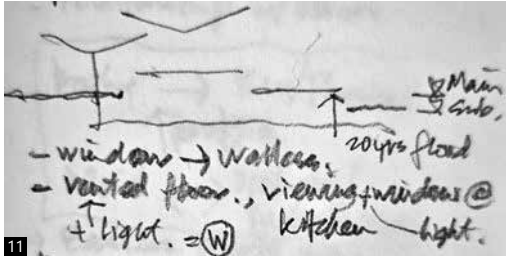 Main
Sub.
20yrs flood
- windows → Walless.
- vented floor., viewing + windows @
↑ + light. = W kitchen light.
11